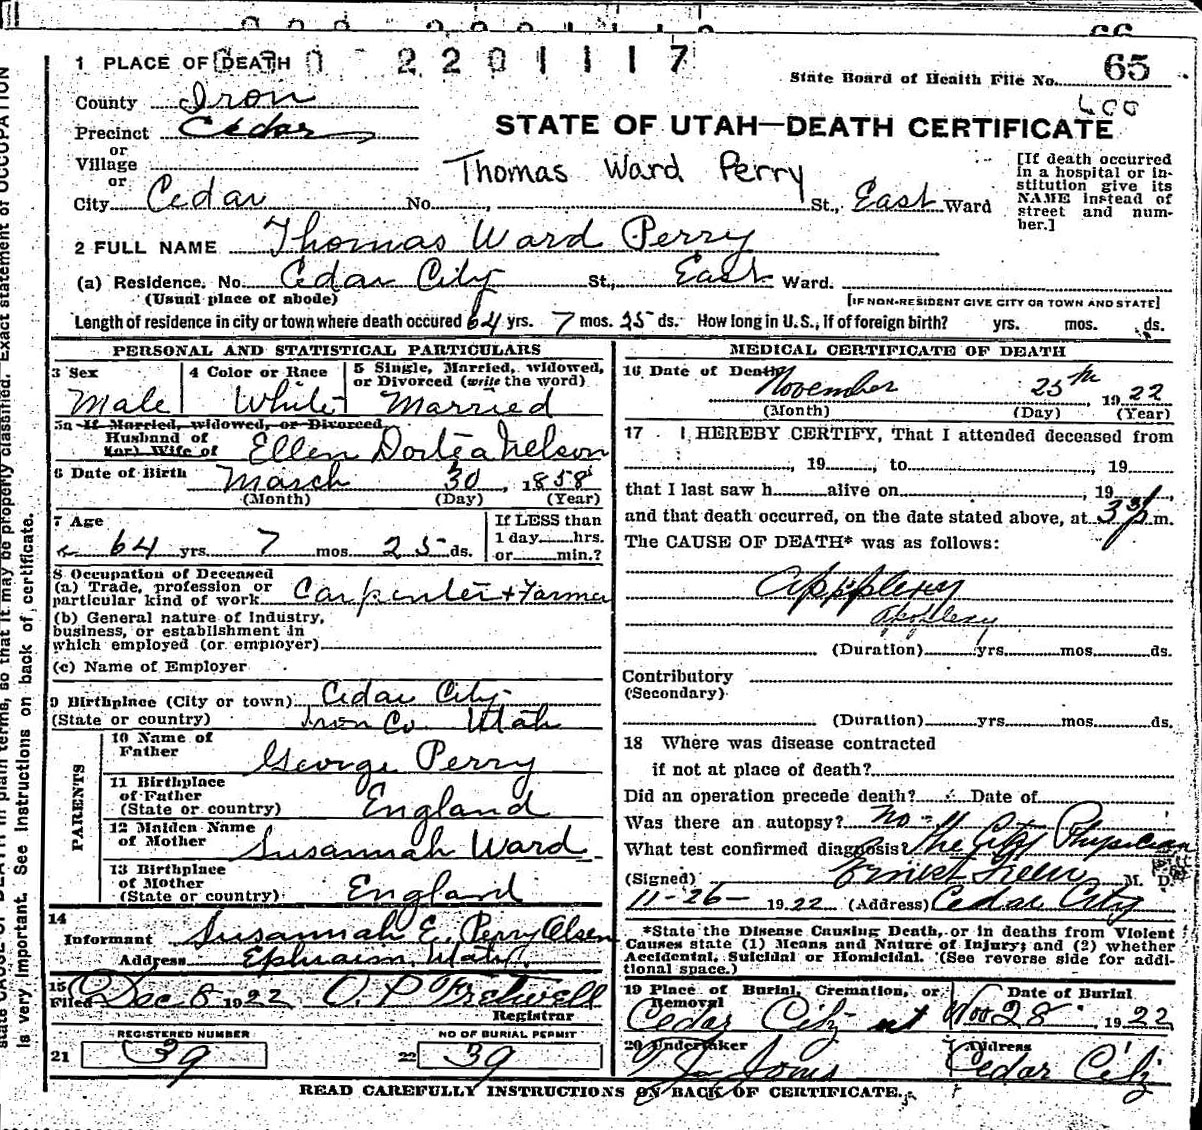 66
1 PLACE OF DEATH 2201117
State Board of Health File No. 65
County Iron
400
Precinct Cedar
STATE OF UTAH—DEATH CERTIFICATE
or
Village
or
Thomas Ward Perry
[If death occurred in a hospital or in-
stitution give its
NAME instead of
street and num-
ber.]
City Cedar No. , St., East Ward
2 FULL NAME Thomas Ward Perry
(a) Residence. No. Cedar City St., East Ward.
(Usual place of abode) [IF NON-RESIDENT GIVE CITY OR TOWN AND STATE]
Length of residence in city or town where death occured 64 yrs. 7 mos. 25 ds. How long in U.S., if of foreign birth? yrs. mos. ds.
PERSONAL AND STATISTICAL PARTICULARS
3 Sex 4 Color or Race 5 Single, Married, widowed,
or Divorced (write the word)
Male White Married
5a If Married, widowed, or Divorced
Husband of
(or) Wife of Ellen Dortea Nelson
6 Date of Birth March 30, 1858
(Month) (Day) (Year)
7 Age If LESS than
1 day hrs.
64 yrs. 7 mos. 25 ds. or min.?
8 Occupation of Deceased
(a) Trade, profession or
particular kind of work Carpenter + Farmer
(b) General nature of Industry,
business, or establishment in
which employed (or employer)
(c) Name of Employer
9 Birthplace (City or town) Cedar City
(State or country) Iron Co. Utah
PARENTS
10 Name of
Father George Perry
11 Birthplace
of Father
(State or country) England
12 Maiden Name
of Mother Susannah Ward
13 Birthplace
of Mother
(State or country) England
14
Informant Susannah E. Perry Olsen
Address Ephraim, Utah
15
Filed Dec 8 1922 O. P. Fretwell
Registrar
REGISTERED NUMBER NO OF BURIAL PERMIT
21 39 22 39
MEDICAL CERTIFICATE OF DEATH
16 Date of Death November 25th, 1922
(Month) (Day) (Year)
17 I HEREBY CERTIFY, That I attended deceased from
, 19 , to , 19
that I last saw h alive on , 19
and that death occurred, on the date stated above, at 3 P m.
The CAUSE OF DEATH* was as follows:
Appplexy
Apoplexy
(Duration) yrs. mos. ds.
Contributory
(Secondary)
(Duration) yrs. mos. ds.
18 Where was disease contracted
if not at place of death?
Did an operation precede death? Date of
Was there an autopsy? No
What test confirmed diagnosis? The City Physician
(Signed) Ernest M. D.
11-26- 1922 (Address) Cedar City
*State the Disease Causing Death, or in deaths from Violent
Causes state (1) Means and Nature of Injury; and (2) whether
Accidental, Suicidal or Homicidal. (See reverse side for addi-
tional space.)
19 Place of Burial, Cremation, or
Removal Date of Burial
Cedar City ut Nov 28, 1922
20 Undertaker Address
Jones Cedar City
READ CAREFULLY INSTRUCTIONS ON BACK OF CERTIFICATE.
state CAUSE OF DEATH in plain terms, so that it may be properly classified. Exact statement of OCCUPATION
is very important. See Instructions on back of certificate.